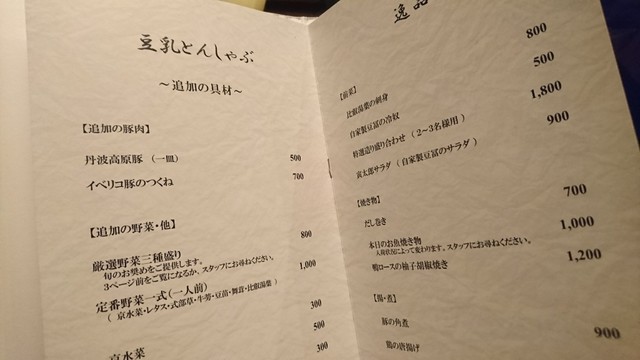 豆乳とんしゃぶ
～追加の具材～
【追加の豚肉】
丹波高原豚（一皿） 500
イベリコ豚のつくね 700
【追加の野菜・他】
厳選野菜三種盛り 800
旬のお奨めをご提供します。
3ページ前をご覧になるか、スタッフにお尋ねください。
定番野菜一式（一人前） 1,000
（ 京水菜・レタス・式部草・牛蒡・豆苗・舞茸・比叡湯葉 ）
京水菜 300
500
300
逸品
【前菜】
比叡湯葉の刺身 800
自家製豆冨の冷奴 500
特選造り盛り合わせ（2～3名様用） 1,800
寅太郎サラダ（自家製豆冨のサラダ） 900
【焼き物】
だし巻き 700
本日のお魚焼き物 1,000
入荷状況によって変わります。スタッフにお尋ねください。
鴨ロースの柚子胡椒焼き 1,200
【揚・煮】
豚の角煮 900
鶏の唐揚げ